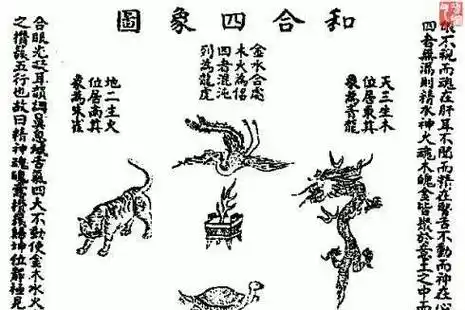 和合四象圖
眼不視而魂在肝耳不聞而精在腎舌不動而神在心
四者無漏則精水神火魂木魄金皆聚於意土之中而
天三生木
位居東其
象為青龍
金水合處
木火為侶
四者混沌
列為龍虎
地二生火
位居南其
象為朱雀
合眼光凝耳韻調鼻息緘舌氣四大不動使金木水火
之攢簇五行也故曰精神魂魄意攢簇歸坤位靜極見